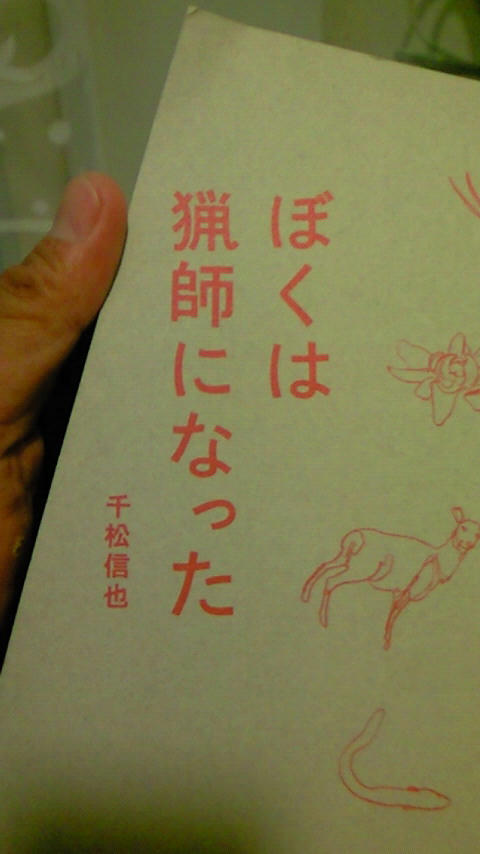 ぼくは
猟師になった
千松信也